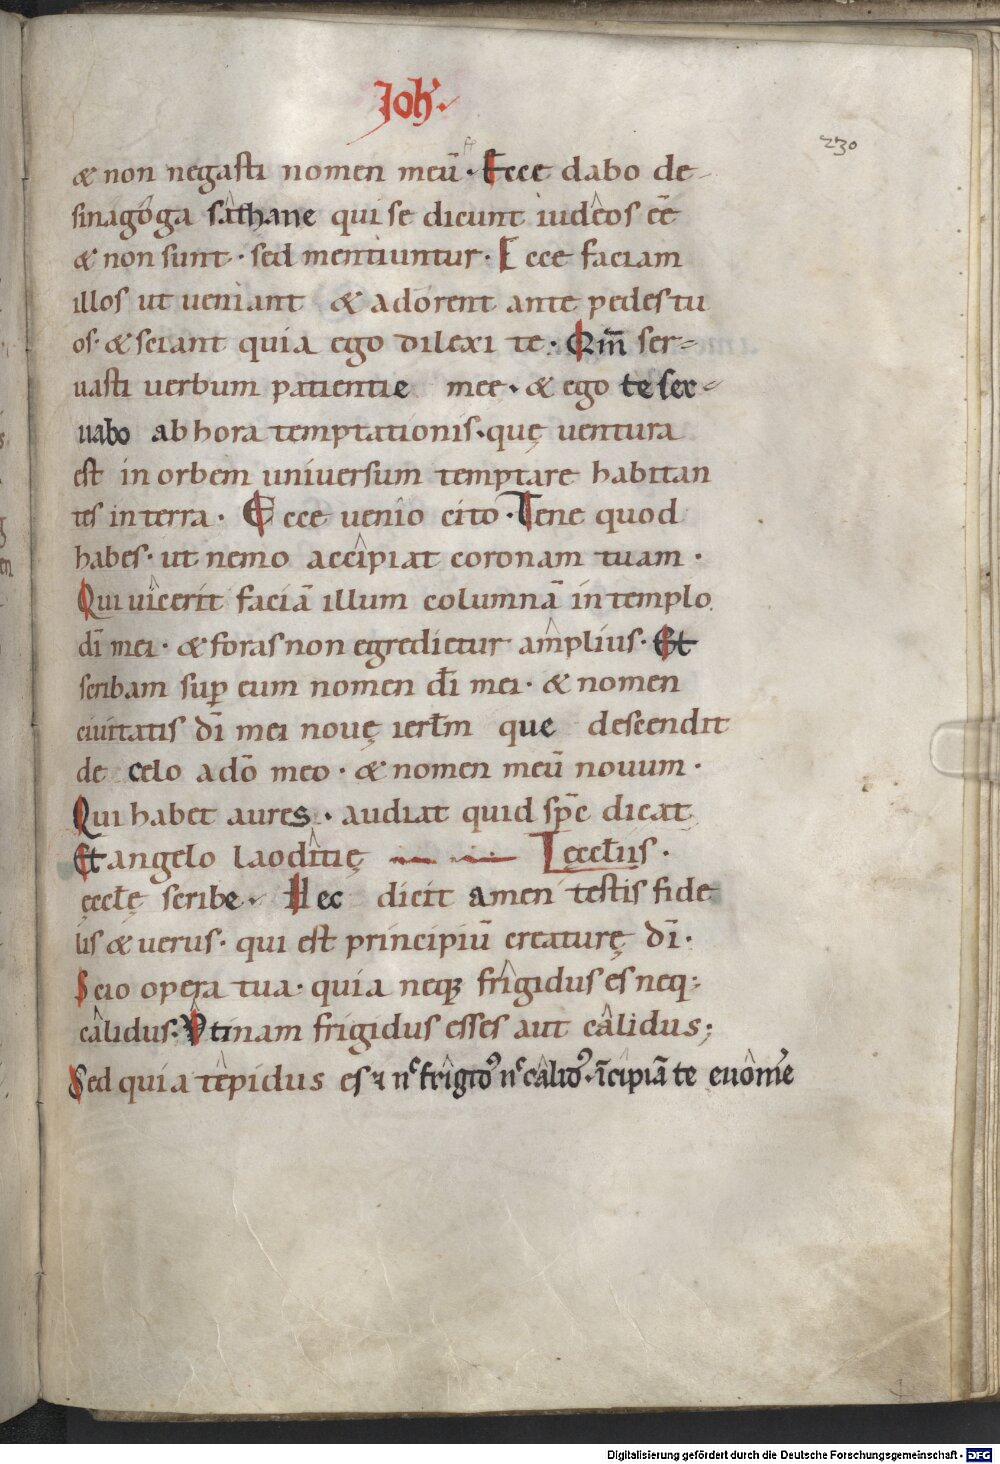 Joh'.
230
& non negasti nomen meū. Ecce dabo de
sinagoga sathane qui se dicunt iudeos eē
& non sunt. sed mentiuntur. Ecce faciam
illos ut ueniant & adorent ante pedes tu
os. & sciant quia ego dilexi te. Qm̄ ser-
uasti uerbum patientie mee. & ego te ser-
uabo ab hora temptationis. quę uentura
est in orbem uniuersum temptare habitan
tes in terra. Ecce uenio cito. Tene quod
habes. ut nemo accipiat coronam tuam.
Qui uicerit faciā illum columnā in templo
dī mei. & foras non egredietur amplius. Et
scribam suꝑ eum nomen dī mei. & nomen
ciuitatis dī mei nouę ierłm que descendit
de celo a dō meo. & nomen meū nouum.
Qui habet aures. audiat quid spē dicat
Et angelo laoditię ęccłiis.
ęccłę scribe. Hec dicit amen testis fide
lis & uerus. qui est principiū creaturę dī.
Scio opera tua. quia neqꝫ frigidus es neq;
calidus. Utinam frigidus esses aut calidus;
Sed quia tepidus es ⁊ nͨ frigidꝰ nͨ calidꝰ. īcipiā te euomē
Digitalisierung gefördert durch die Deutsche Forschungsgemeinschaft - DFG